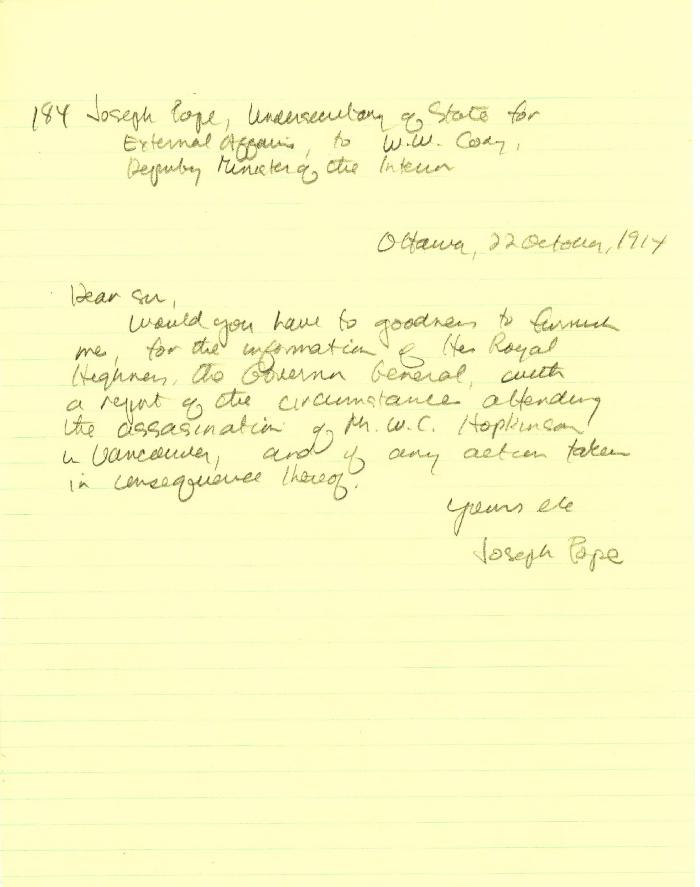 184 Joseph Pope, Undersecretary of State for
External Affairs, to W.W. Cory,
Deputy Minister of the Interior
Ottawa, 22 October, 1914
Dear Sir,
Would you have to goodness to furnish
me, for the information of His Royal
Highness, the Governor General, with
a report of the circumstances attending
the assasination of Mr. W.C. Hopkinson
in Vancouver, and of any action taken
in consequence thereof.
Yours etc
Joseph Pope